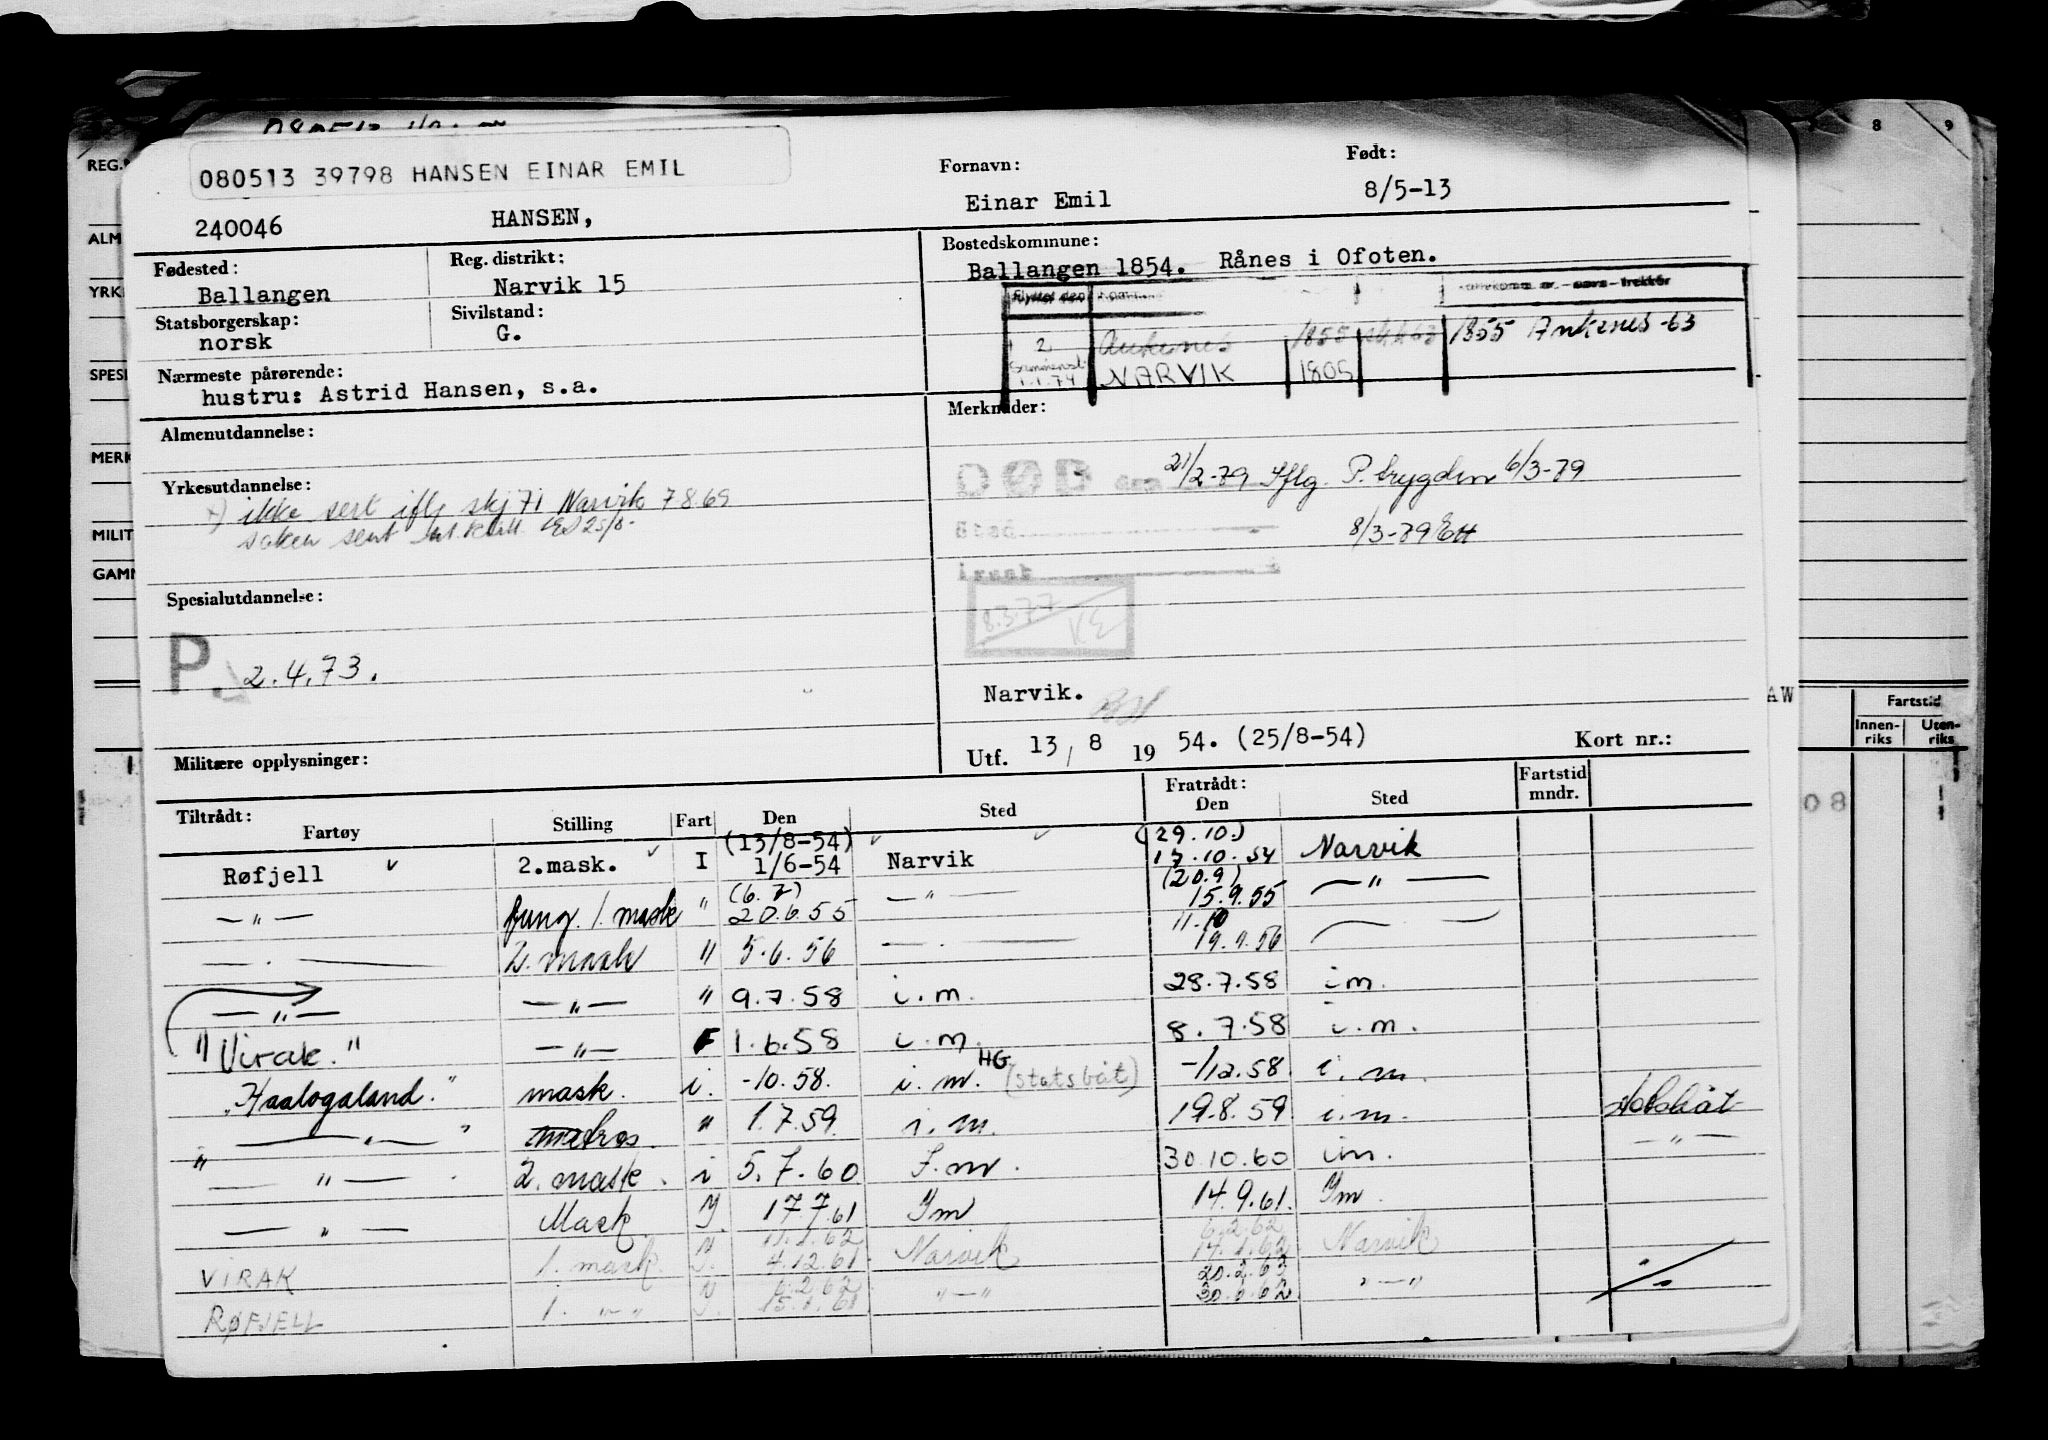 8 9
REG.N
080513 39798 HANSEN EINAR EMIL
240046 HANSEN,
Fornavn: Einar Emil
Født: 8/5-13
ALM
YRK
SPESI
MERK
MILIT
GAMM
Fødested: Ballangen
Reg. distrikt: Narvik 15
Bostedskommune: Ballangen 1854. Rånes i Ofoten.
Statsborgerskap: norsk
Sivilstand: G.
Flyttet den
2 Ankenes 1855 1855 Ankenes -63
Sammensl. 1.1.74 NARVIK 1805
Nærmeste pårørende:
hustru: Astrid Hansen, s.a.
Almenutdannelse:
Merknader:
21/2-79 Iflg. P. trygden 6/3-79
8/3-79 EH
8.3.77
Yrkesutdannelse:
ikke sert iflg skj 71 Narvik 7869
saken sent
Spesialutdannelse:
P. 2.4.73.
Narvik.
Utf. 13/8 1954. (25/8-54) Kort nr.:
Militære opplysninger:
AW
Fartstid
Innen-riks Uten-riks
08
Tiltrådt: Fartøy Stilling Fart Den Sted Fratrådt: Den Sted Fartstid mndr.
(13/8-54) (29.10.)
Røfjell 2.mask. I 1/6-54 Narvik 17.10.54 Narvik
(6.7) (20.9)
—"— fung. 1. mask " 20.6.55 —"— 15.9.55 —"—
11.10
2. mask " 5.6.56 19.9.56
—"— —"— " 9.7.58 i.m. 28.7.58 i.m.
"Virak." —"— F 1.6.58 i.m. 8.7.58 i.m.
"Haalogaland." mask. i. -10.58. i.m. HG (statsbåt) -/12.58. i.m.
" —"— " matros. " 1.7.59. i.m. 19.8.59 i.m. statsbåt
—"— 2. mask. i 5.7.60 I.m. 30.10.60 i.m. —"—
—"— Mask. I. 17.7.61 Im 14.9.61. Im.
6.2.62
VIRAK 1. mask. 4.12.61 Narvik 14.1.62 Narvik
6.2.62 20.2.63
RØFJELL 1. —"— 15.1.61 "—" 30.6.62 "—"